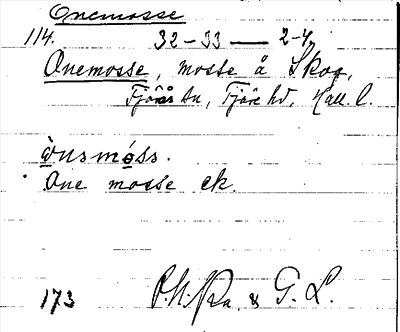 Onemosse
114. 32-33 — 2-4
Onemosse, mosse å Skog,
Fjärås sn, Fjäre hd, Hall. l.
ònsmóss.
One mosse ek.
173 & G. L.